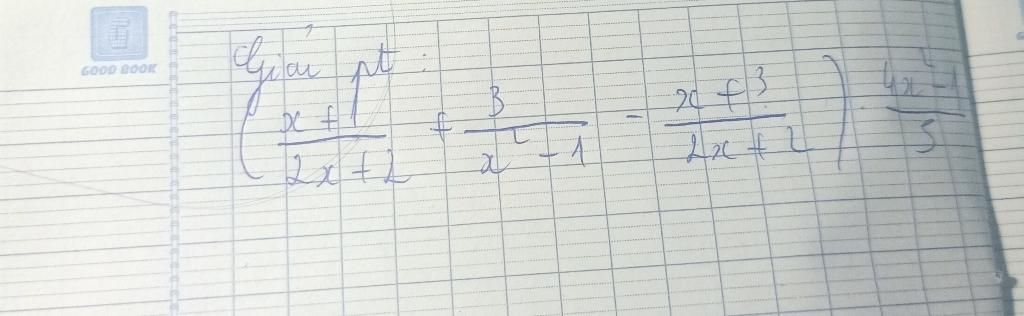 GOOD BOOK
Giải pt:
( \frac{x+1}{2x+2} + \frac{3}{x^2-1} - \frac{x+3}{2x+2} ) . \frac{4x^2-1}{5}